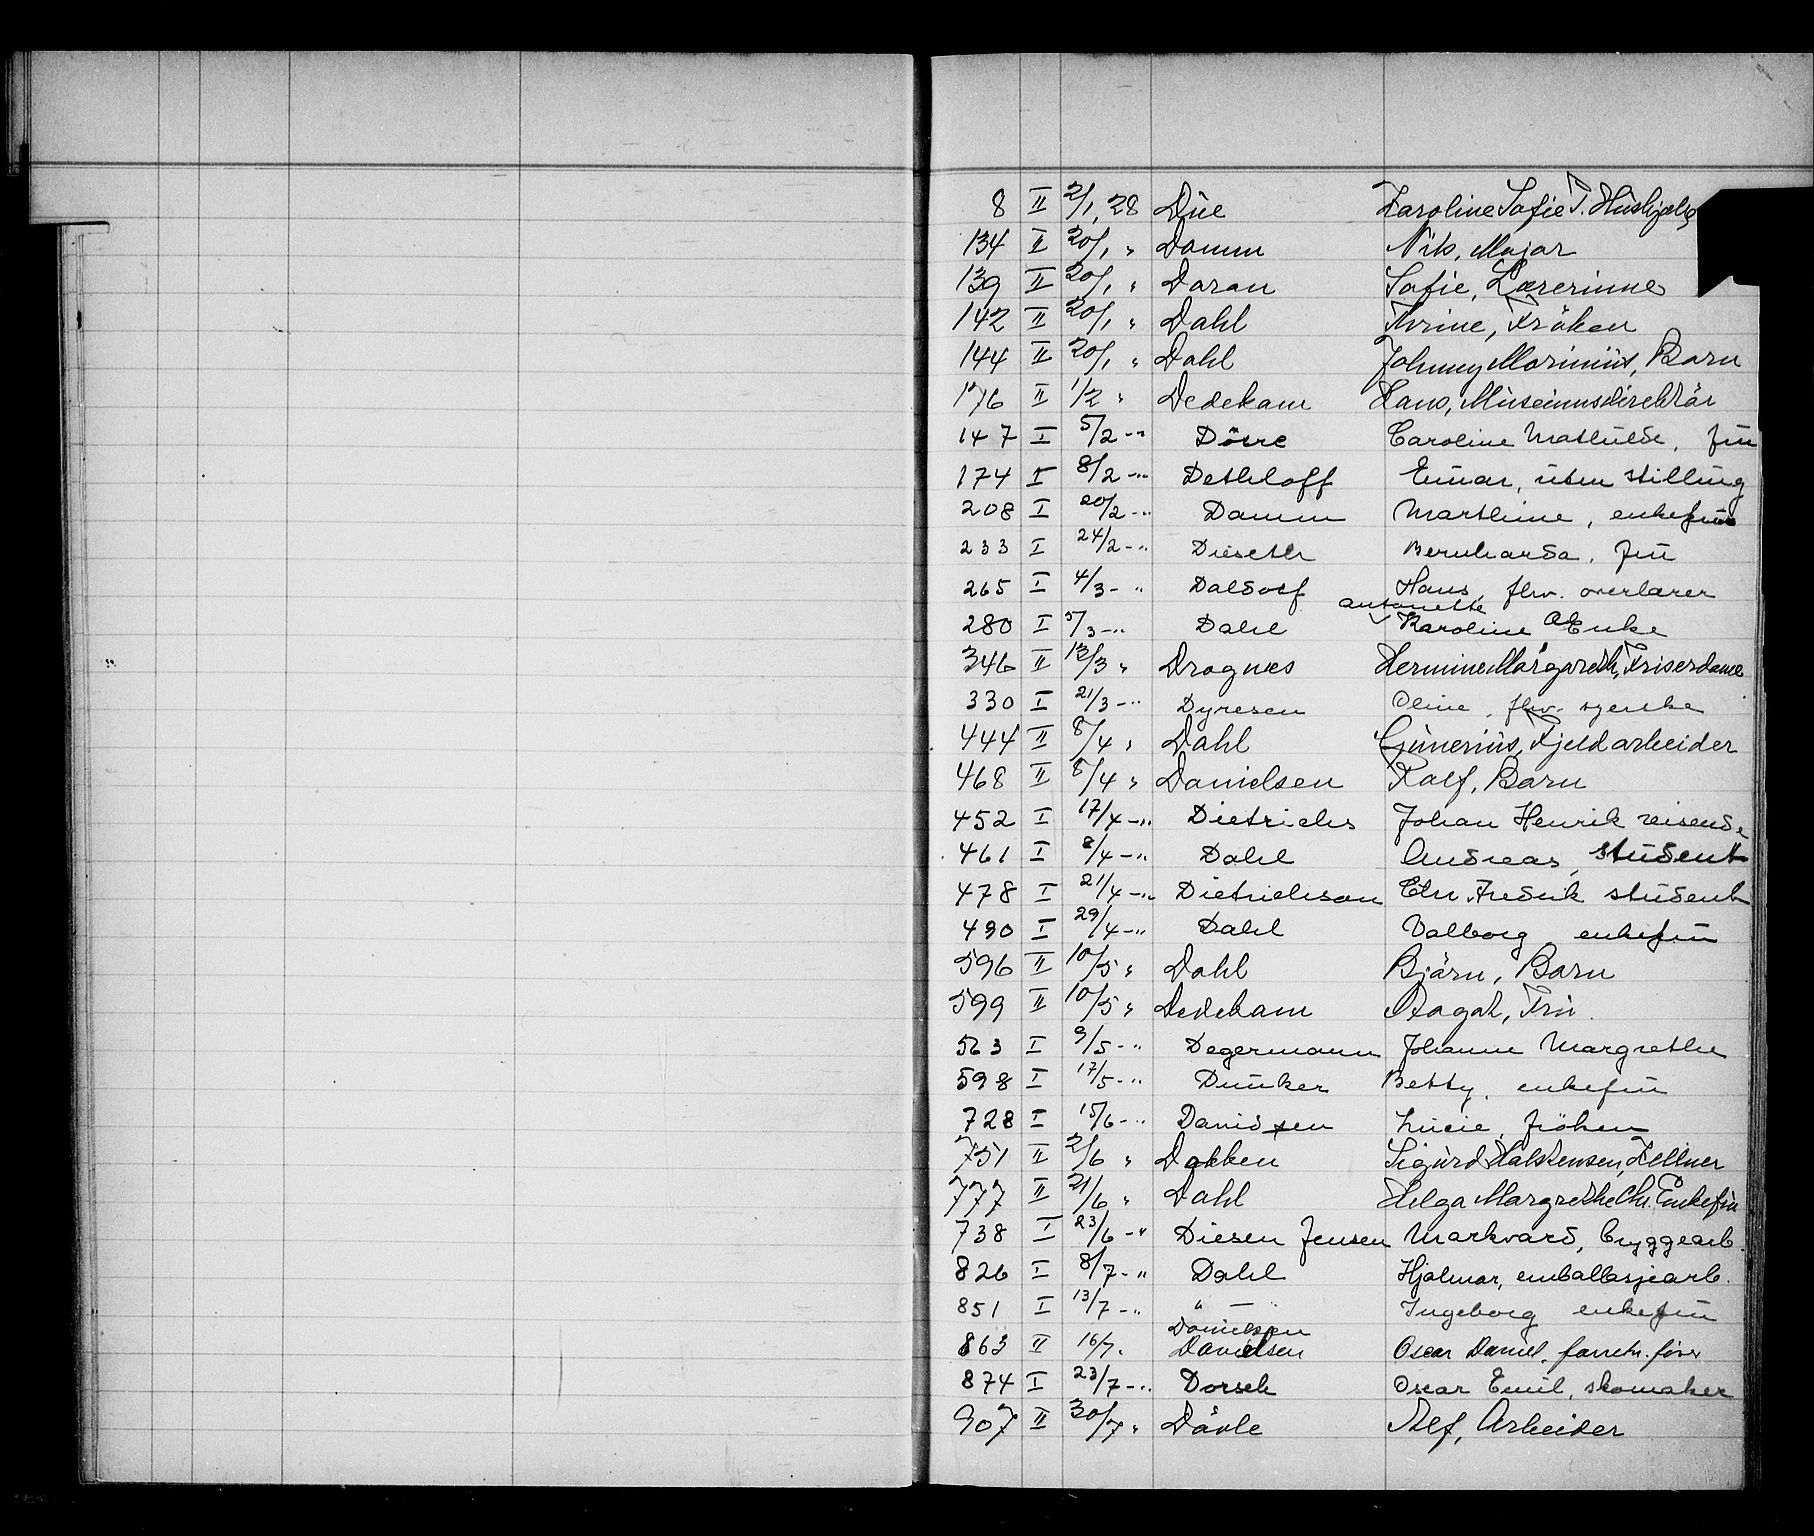 8 II 2/1, 28 Due Karoline Sofie T. Hushjelp
134 II 20/1 " Damm Nils, Major
139 II 20/1 " Daran Sofie, Lærerinne
142 II 20/1 " Dahl Thrine, Frøken
144 II 20/1 " Dahl Johnny Marinius, Barn
176 II 1/2 " Dedekam Hans, Museumsdirektør
147 I 5/2 -"- Caroline Mathilde, fru
174 I 8/2 -"- Dethloff Einar, uten stilling
208 I 20/2 -"- Damm Marthine, enkefru
233 I 24/2 -"- Dieseth Bernharda, fru
265 I 4/3 - " Daldorf Hans, fhv. overlærer
280 I 5/3 -"- Dahl Karoline antonette Enke
346 II 13/3 " Dragnes Hermine Margareth, Friserdame
330 I 21/3 -"- Dyresen Oline, fhv. syerske
444 II 8/4 " Dahl Gunerius, Fjeldarbeider
468 II 8/4 " Danielsen Ralf, Barn
452 I 17/4 -"- Dietrichs Johan Henrik reisende
461 I 8/4 -"- Dahl Andreas, student
478 I 21/4 -"- Dietrichson Chr. Fredrik student
490 I 29/4 -"- Dahl Valborg enkefru
596 II 10/5 " Dahl Bjørn, Barn
599 II 10/5 " Dedekam Aagot, Fru.
563 I 9/5 -"- Degermann Johanne Margrethe
598 I 17/5 -"- Dunker Betty, enkefru
728 I 15/6 -"- Davidsen Lucie, frøken
751 II 2/6 " Dokken Sigurd Halstensen, Kellner
777 II 21/6 " Dahl Helga Margrethe Chr. Enkefru
738 I 23/6 -"- Diesen Jensen Markvard, bryggearb.
826 I 8/7 -"- Dahl Hjalmar, emballasjearb.
851 I 13/7 -"- " — " Ingeborg enkefru
Danielsen
863 II 16/7. Davidsen Oscar Daniel, forretn. fører
874 I 23/7 -"- Dorsch Oscar Emil, skomaker
907 II 30/7 " Døvle Alf, Arbeider